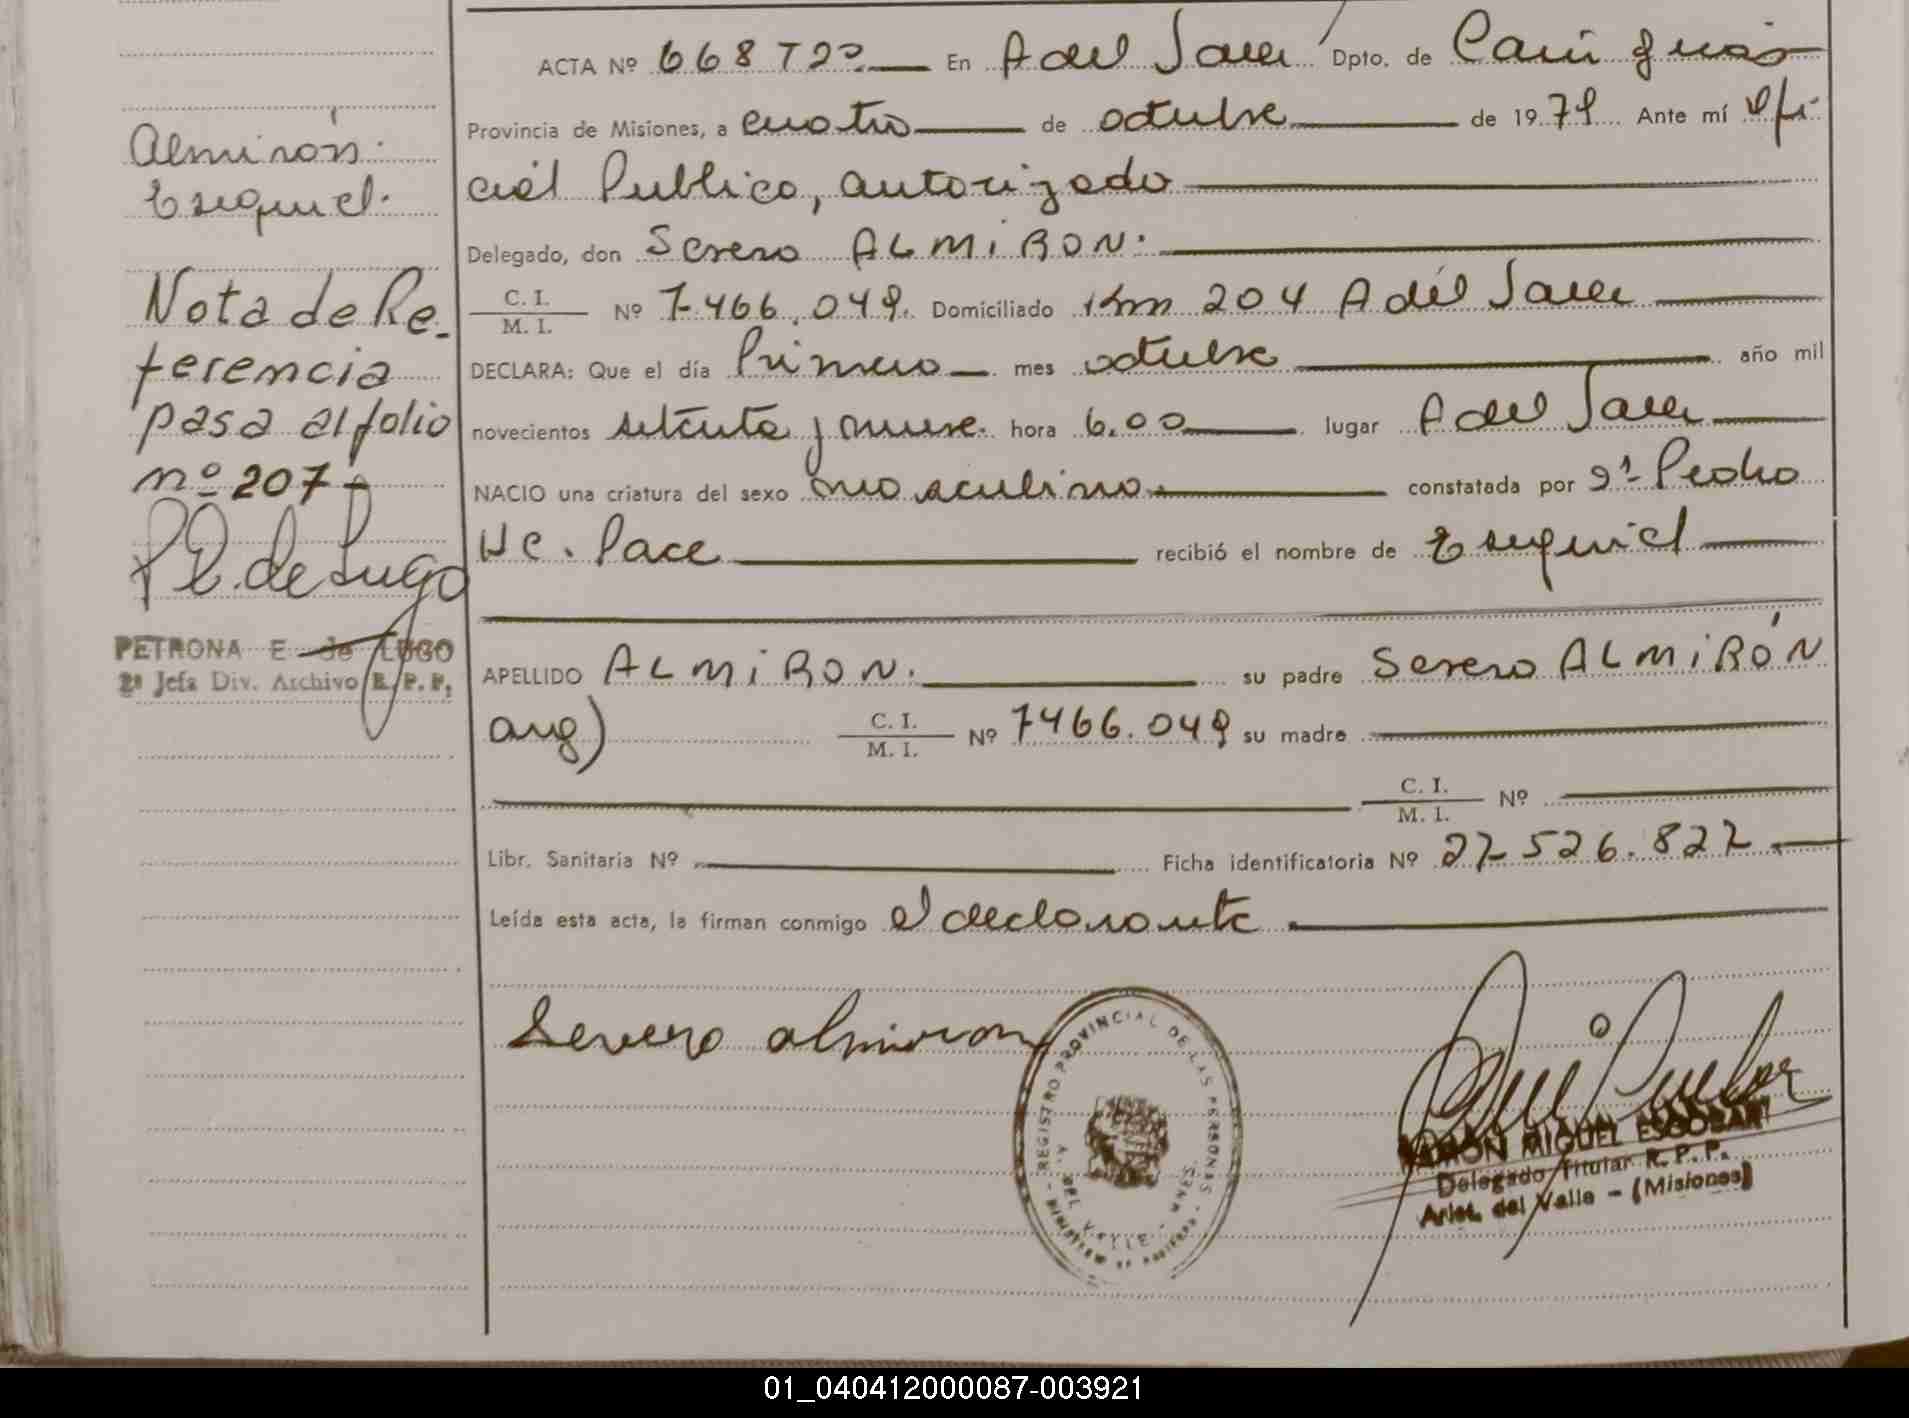 Almirón
Esequiel.
Nota de Re-
ferencia
pasa al folio
nº 207-
P E. de Lugo
PETRONA E de LUGO
2ª Jefa Div. Archivo R. P. P.
ACTA Nº 668 Tº En A del Valle Dpto. de Cainguás
Provincia de Misiones, a cuatro de octubre de 1979 Ante mí Ofi
cial Publico, autorizado
Delegado, don Severo ALMIRON.
C. I. / M. I. Nº 7.466.049. Domiciliado Km 204 A del Valle
DECLARA: Que el día Primero mes octubre año mil
novecientos setenta y nueve. hora 6.00 lugar A del Valle
NACIO una criatura del sexo masculino constatada por Pedro
Pace recibió el nombre de Esequiel
APELLIDO ALMIRON. su padre Severo ALMIRÓN
arg) C. I. / M. I. Nº 7466.049 su madre
C. I. / M. I. Nº
Libr. Sanitaria Nº Ficha identificatoria Nº 27.526.822
Leída esta acta, la firman conmigo el declarante
Severo almiron
REGISTRO PROVINCIAL DE LAS PERSONAS
DEL VALLE
RAMÓN MIGUEL ESCOBAR
Delegado Titular R. P. P.
Arist. del Valle - (Misiones)
01_040412000087-003921